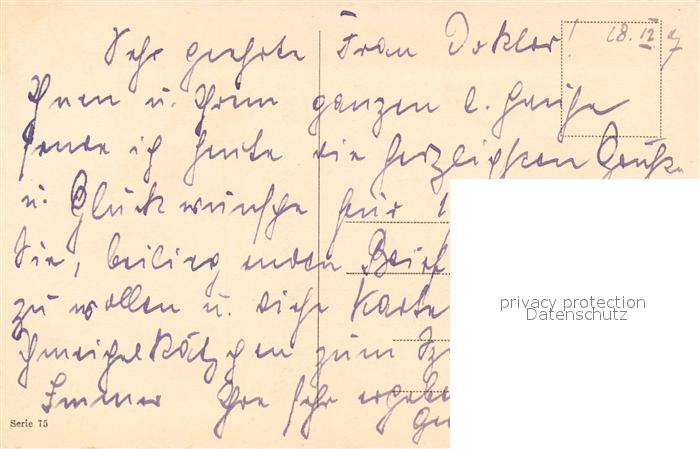 18. 12
Sehr geehrte Frau Doktor!
Ihnen u. Ihrem ganzen l. Hause
sende ich heute die herzlichsten Grüße
u. Glückwünsche für
Sie, beiliegenden Brief
zu wollen u. diese Karte
Schmeichelkätzchen zum
Immer Ihre sehr ergebe
privacy protection
Datenschutz
Serie 75